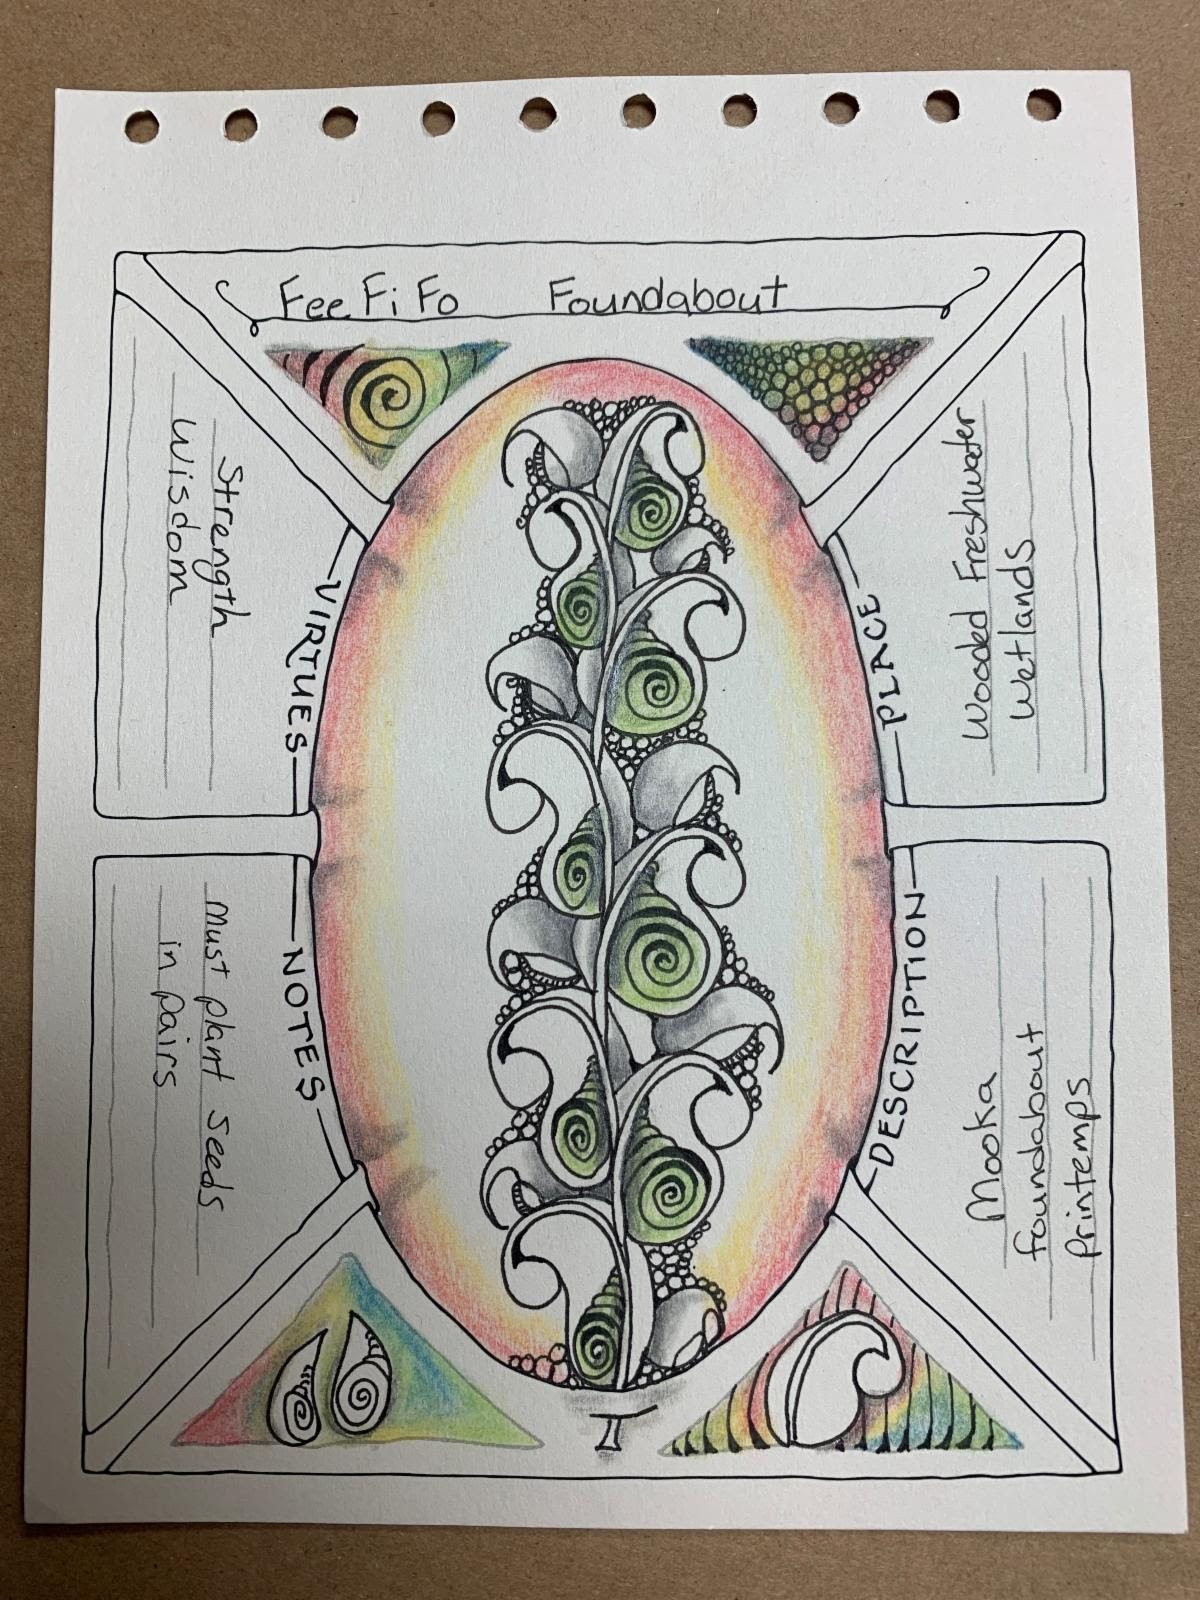 Fee Fi Fo Foundabout
VIRTUES
Strength
Wisdom
PLACE
Wooded Freshwater
Wetlands
NOTES
Must plant seeds
in pairs
DESCRIPTION
Mooka
foundabout
printemps